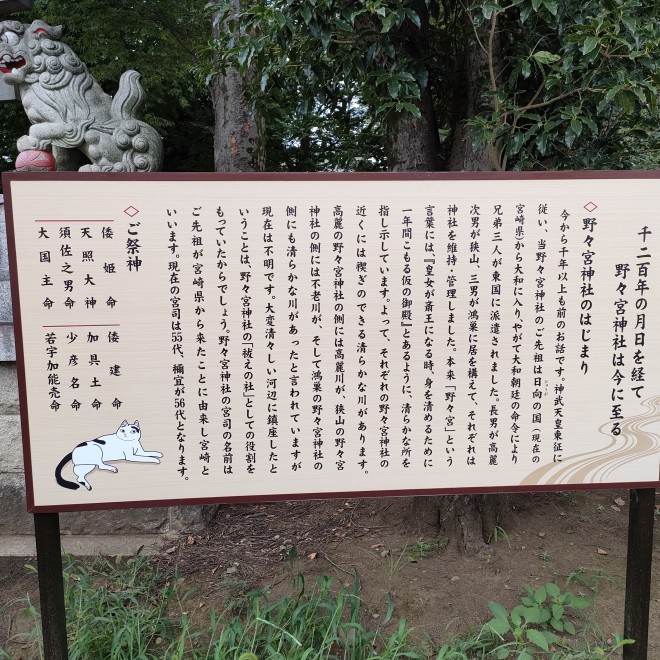 千二百年の月日を経て
野々宮神社は今に至る
◇野々宮神社のはじまり
今から千年以上も前のお話です。神武天皇東征に
従い、当野々宮神社のご先祖は日向の国（現在の
宮崎県から大和に入り、やがて大和朝廷の命令により
兄弟三人が東国に派遣されました。長男が高麗
次男が狭山、三男が鴻巣に居を構えて、それぞれは
神社を維持・管理しました。本来「野々宮」という
言葉には『皇女が斎王になる時、身を清めるために
一年間こもる仮の御殿』とあるように、清らかな所を
指し示しています。よって、それぞれの野々宮神社の
近くには禊ぎのできる清らかな川があります。
高麗の野々宮神社の側には高麗川が、狭山の野々宮
神社の側には不老川が、そして鴻巣の野々宮神社の
側にも清らかな川があったと言われていますが
現在は不明です。大変清々しい河辺に鎮座したと
いうことは、野々宮神社の「祓えの社」としての役割を
もっていたからでしょう。野々宮神社の宮司の名前は
ご先祖が宮崎県から来たことに由来し宮崎と
いいます。現在の宮司は55代、禰宜が56代となります。
◇ご祭神
倭姫命
天照大神
須佐之男命
大国主命
倭建命
加具土命
少彦名命
若宇加能売命